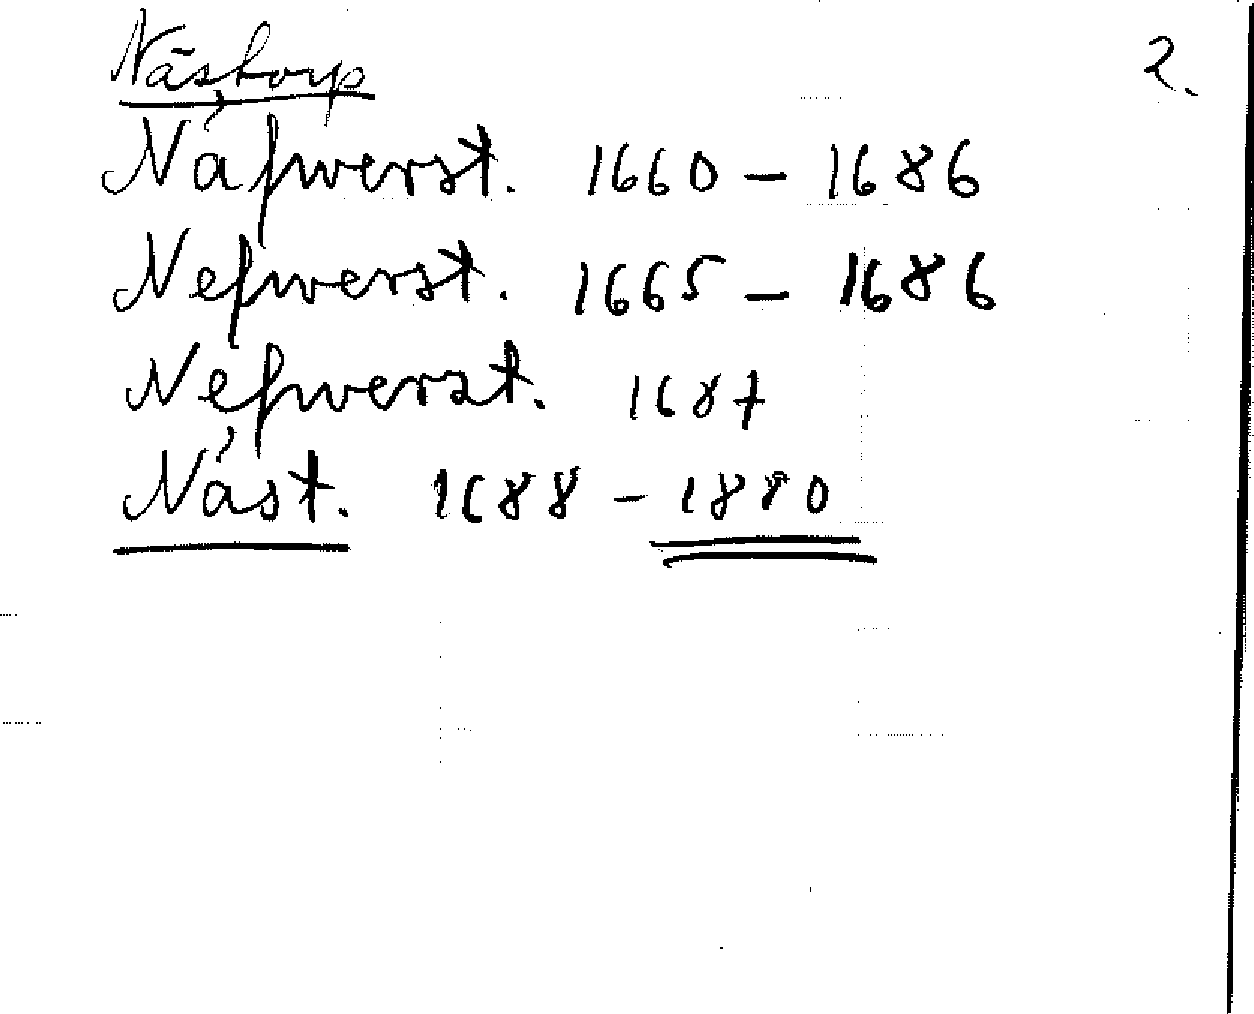 Nästorp 2.
Näfwerst. 1660 – 1686
Nefwerst. 1665 – 1686
Nefwerst. 1687
Näst. 1688 – 1880